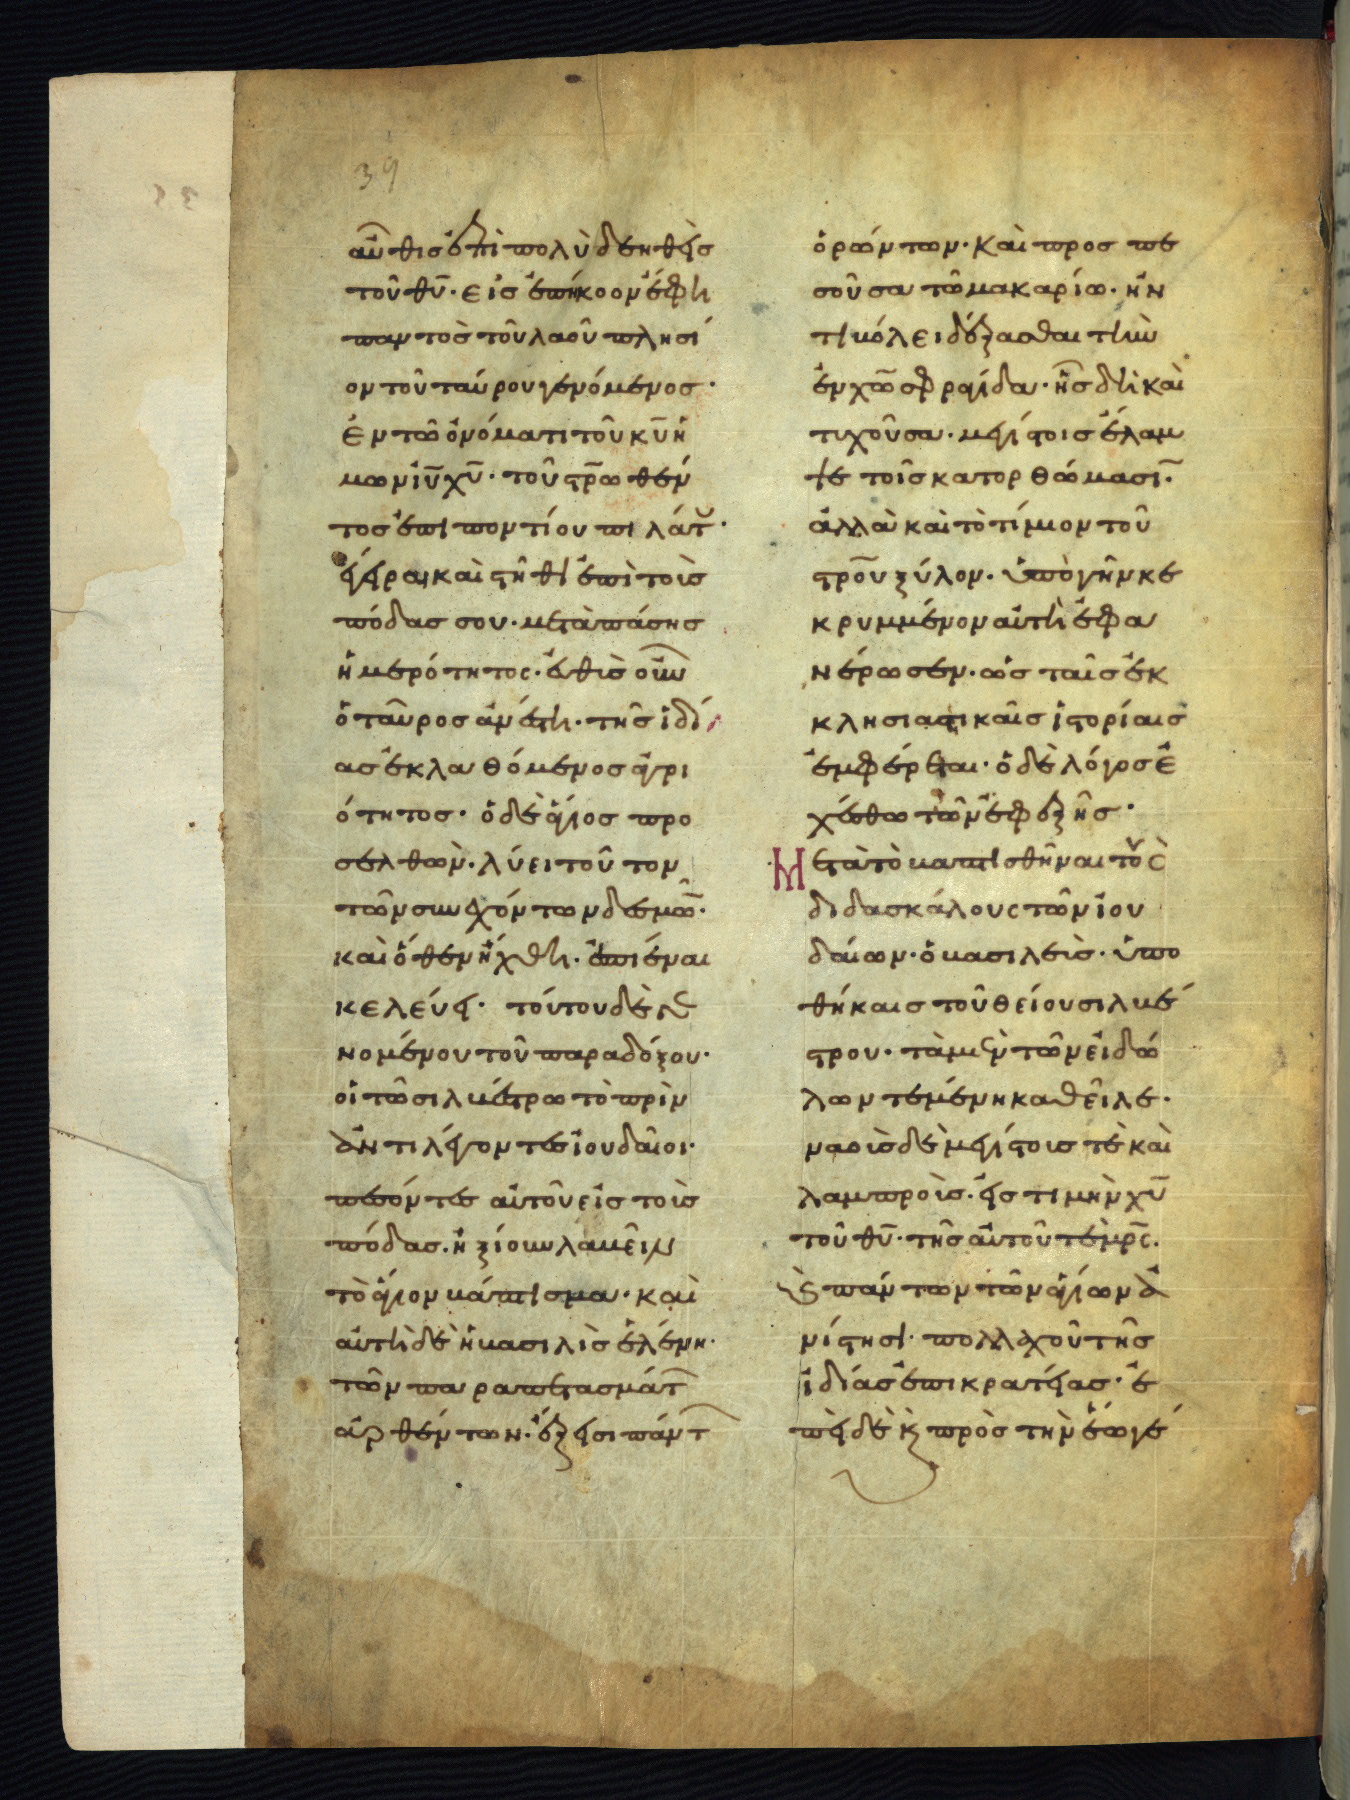 39
αὖθις ἐπιπολὺ δεηθεὶς
τοῦ θῦ· εἰς ἐπήκοον ἔφη
παντὸς τοῦ λαοῦ πλησί
ον τοῦ ταύρου γενόμενος·
ἐν τῶ ὀνόματι τοῦ κῦ ἡ
μων ἰῦ χῦ· τοῦ στρωθέν
τος ἐπι ποντίου πιλάτου·
ἔγειραι καὶ στῆθι ἐπὶ τοὺς
πόδας σου· μετὰ πάσης
ἡμερότητος· εὐθὺς οὖν
ὁ ταῦρος ἀνέστη· τῆς ἰδί
ας ἐκλαθόμενος ἀγρι
ότητος· ὁ δὲ ἅγιος προ
σελθὼν· λύει τοῦτον
τῶν συνεχόντων δεσμῶ·
καὶ ὅθεν ἤχθη· ἀπιέναι
κελεύει· τούτου δὲ γε
νομένου τοῦ παραδόξου·
οἱ τῶ σιλβέστρω τὸ πρὶν
ἀντιλέγοντες ἰουδαῖοι·
πεσόντες αὐτοῦ εἰς τοὺς
πόδας· ἠξίουν λαβεῖν
τὸ ἅγιον βάπτισμα· καὶ
αὐτὴ δὲ ἡ βασιλὶς ἑλένη·
τῶν παραπετασμάτ
ἀρθέντων· ἔξεισι πάντ
ὁρώντων· καὶ προσπε
σοῦσα τῶ μακαρίω· ἠν
τιβόλει δέξασθαι τὴν
ἐν χῶ σφραγίδα· ἧς δὴ καὶ
τυχοῦσα· μεγίστοις ἔλαμ
ψε τοῖς κατορθώμασι·
ἀλλὰ καὶ τὸ τίμιον τοῦ
στροῦ ξύλον· ὑπὸ γῆν κε
κρυμμένον αὐτὴ ἐφα
νέρωσεν· ὡς ταῖς ἐκ
κλησιαστικαῖς ἱστορίαις
ἐμφέρεται· ὁ δὲ λόγος ἐ
χέσθω τῶν ἐφεξῆς·
Μετὰ τὸ βαπτισθῆναι τοὺς
διδασκάλους τῶν ἰου
δαίων· ὁ βασιλεὺς· ὑπο
θήκαις τοῦ θείου σιλβέ
στρου· τὰ μὲν τῶν εἰδώ
λων τεμένη καθεῖλε·
ναοὺς δὲ μεγίστοις τὲ καὶ
λαμπροὺς· εἰς τιμὴν χῦ
τοῦ θῦ· τῆς αὐτοῦ τὲ μρς·
καὶ πάντων τῶν ἁγίων ἀ
νίστησι· πολλαχοῦ τῆς
ἰδίας ἐπικρατείας· ἐ
πεὶ δὲ καὶ πρὸς τὴν ἑώ γέ